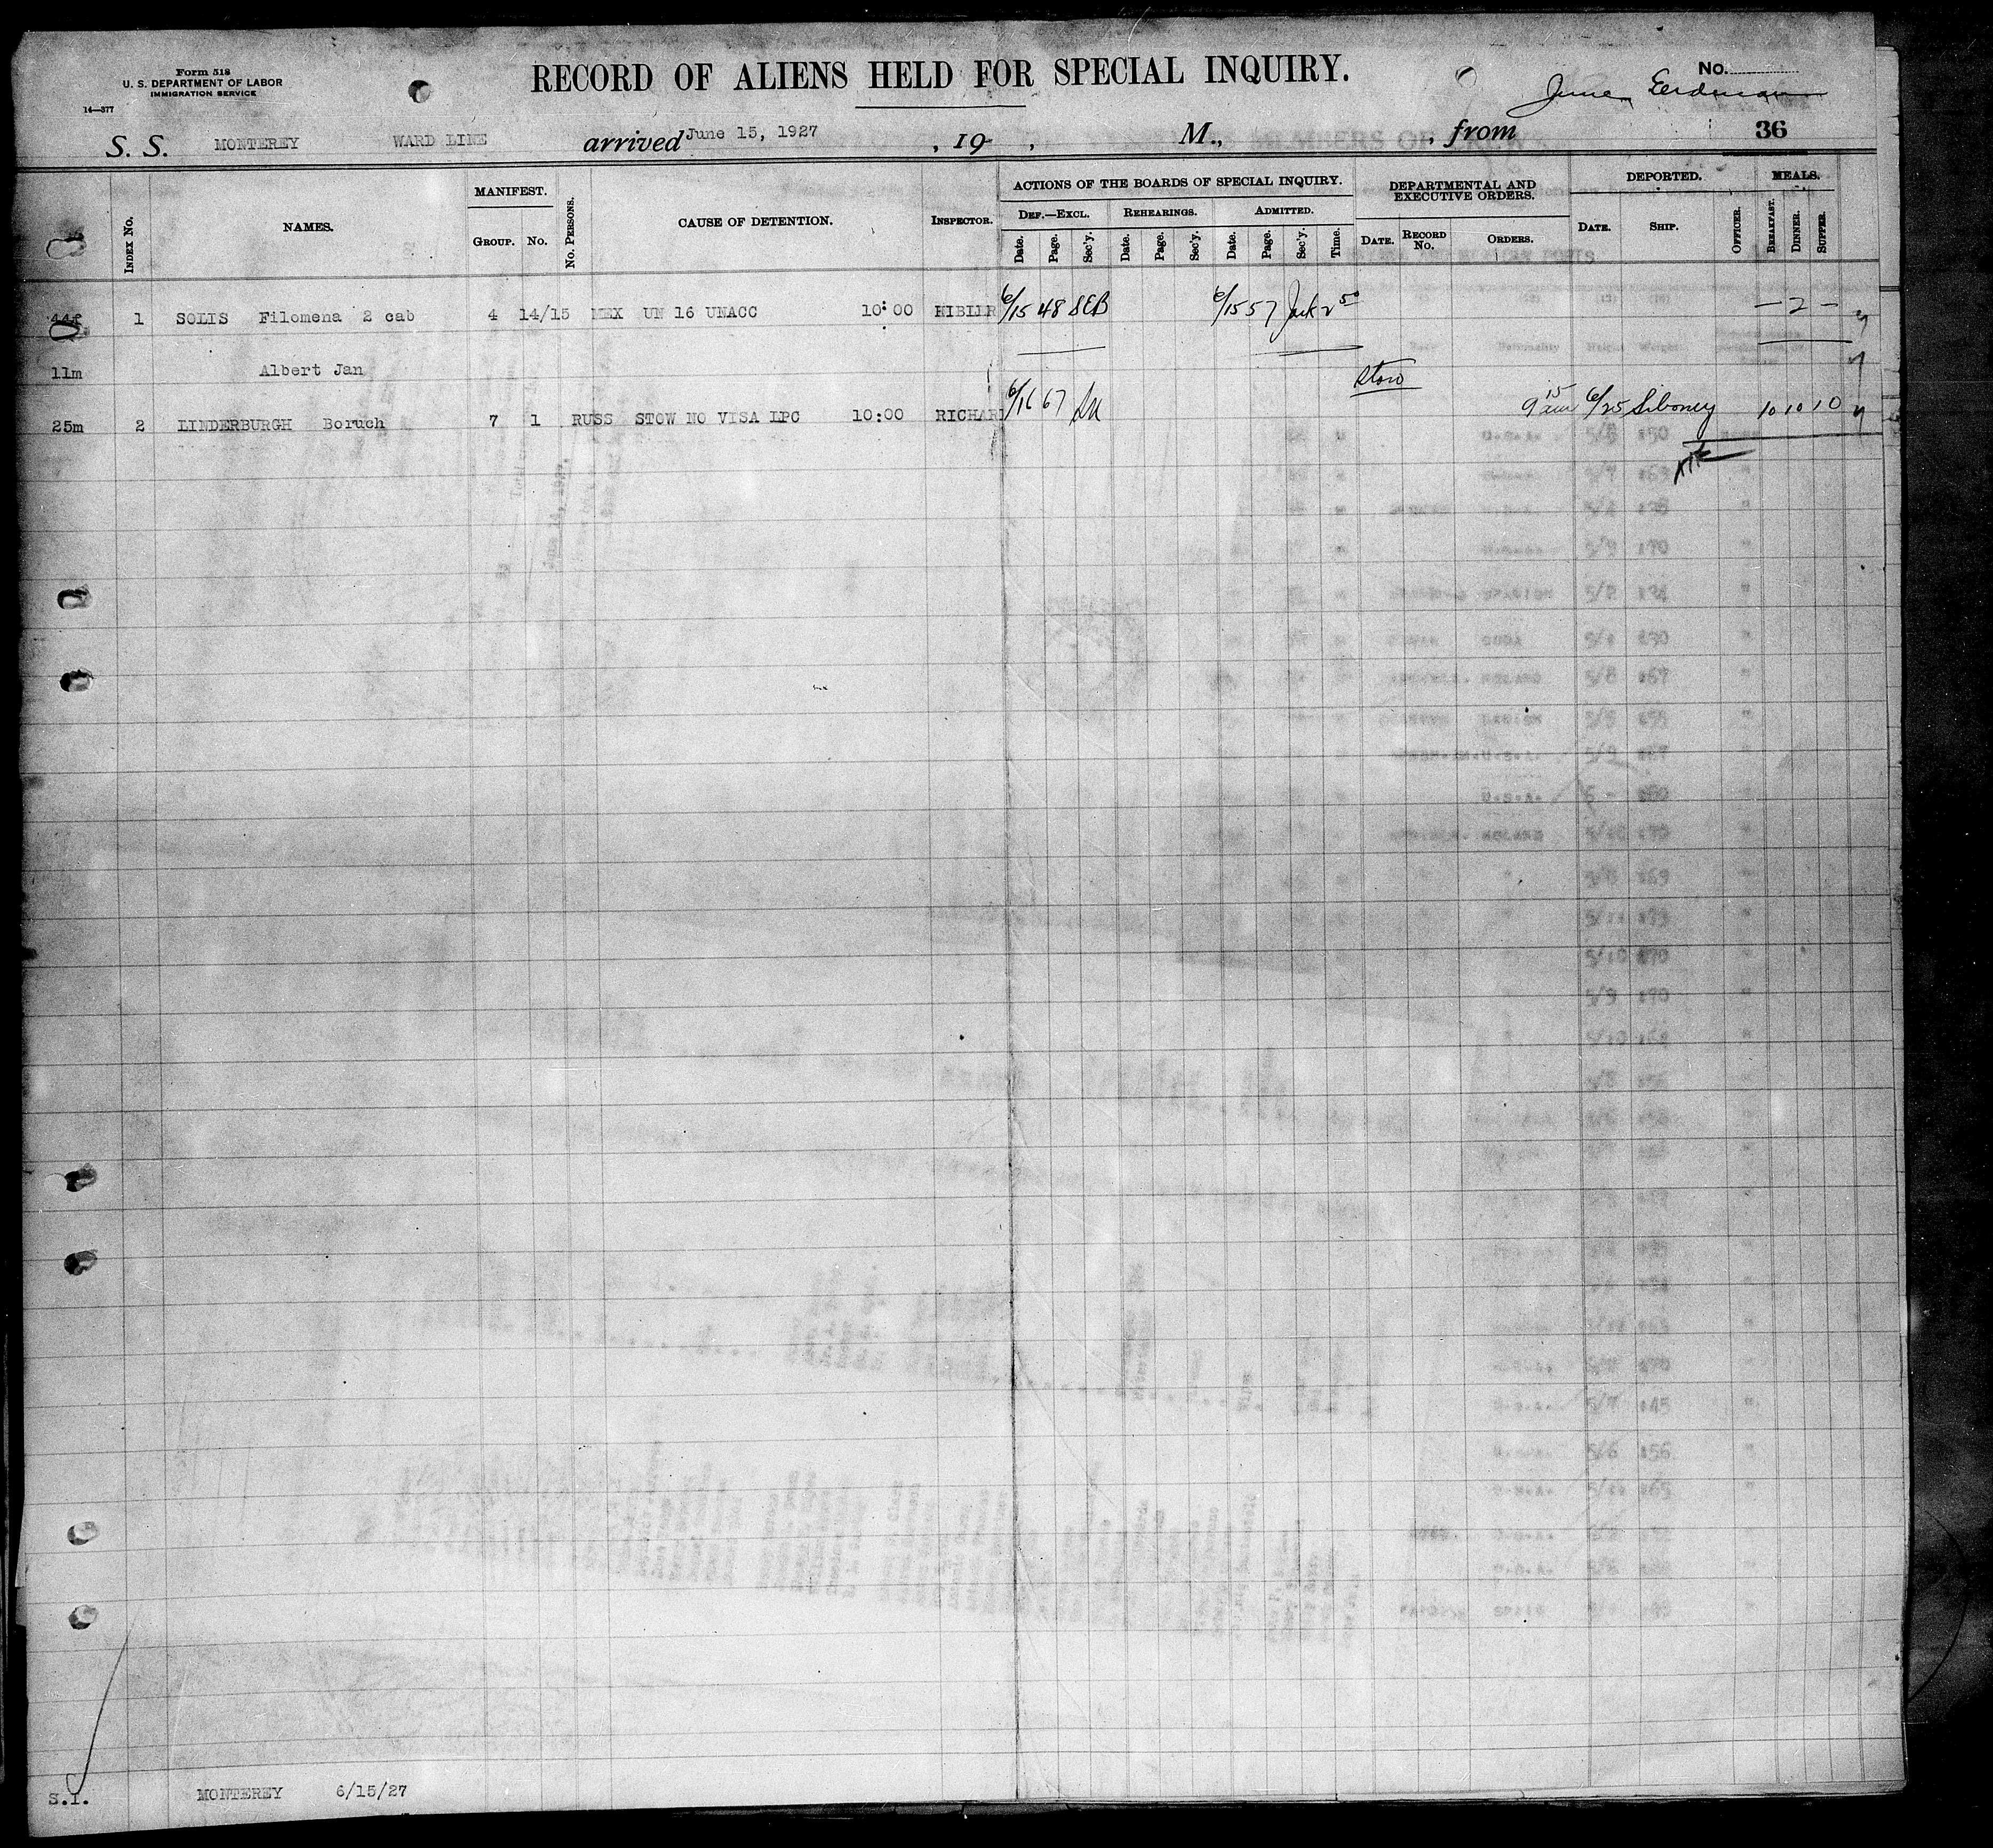 Form 518
U. S. DEPARTMENT OF LABOR
IMMIGRATION SERVICE
14—377
RECORD OF ALIENS HELD FOR SPECIAL INQUIRY.
No.
S. S. MONTEREY WARD LINE arrived June 15, 1927, 19 , M., , from 36
INDEX No. NAMES. MANIFEST. GROUP. No. No. PERSONS. CAUSE OF DETENTION. INSPECTOR. ACTIONS OF THE BOARDS OF SPECIAL INQUIRY. DEF.—EXCL. Date. Page. Sec'y. REHEARINGS. Date. Page. Sec'y. ADMITTED. Date. Page. Sec'y. Time. DEPARTMENTAL AND EXECUTIVE ORDERS. DATE. RECORD No. ORDERS. DEPORTED. DATE. SHIP. OFFICER. MEALS. BREAKFAST. DINNER. SUPPER.
44f 1 SOLIS Filomena 2 cab 4 14/15 MEX UN 16 UNACC 10:00 6/15 48 SEB 6/15 57 — 2 —
11m Albert Jan
Stow
25m 2 LINDERBURGH Boruch 7 1 RUSS STOW NO VISA LPC 10:00 RICHAR 6/16 67 9 15 am 6/25 Siboney 10 10 10
S.I. MONTEREY 6/15/27